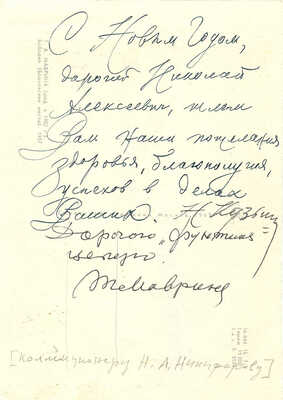 С Новым Годом,
дорогой Николай
Алексеевич, шлём
Вам наши пожелания
здоровья, благополучия,
успехов в делах
Ваших. Н Кузьмин
Дорогого
целую.
ТМаврина
[коллекционеру Н. А. Никифорову]